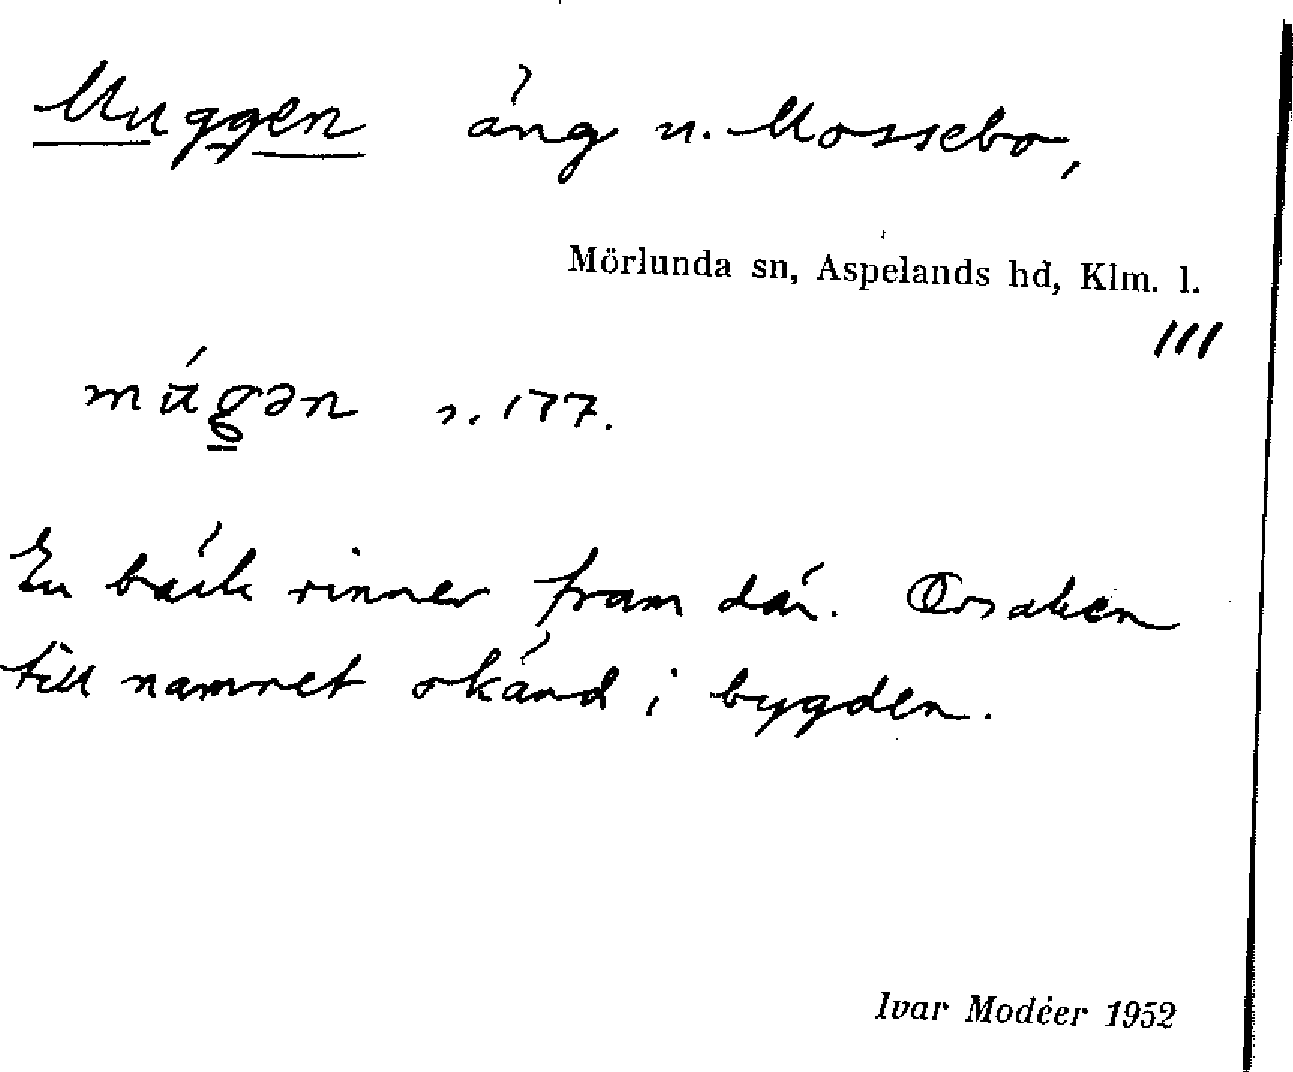 Muggen äng n. Mossebo,
Mörlunda sn, Aspelands hd, Klm. l.
III
s. 177.
En bäck rinner fram där. Orsaken
till namnet okänd i bygden.
Ivar Modéer 1952